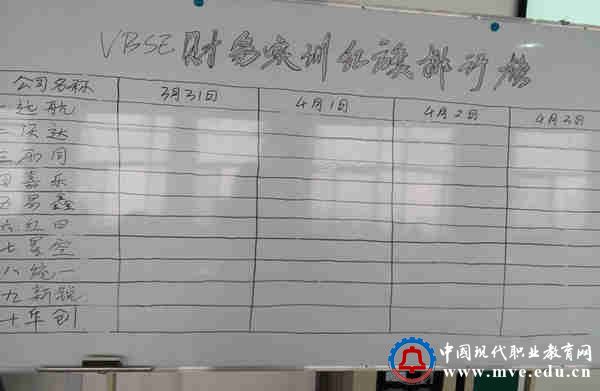 VBSE财务实训红旗排行榜
公司名称 3月31日 4月1日 4月2日 4月3日
一远航
二沃达
三雨同
四嘉乐
五易鑫
六红日
七星空
八统一
九新锐
十年创
中国现代职业教育网
www.mve.edu.cn